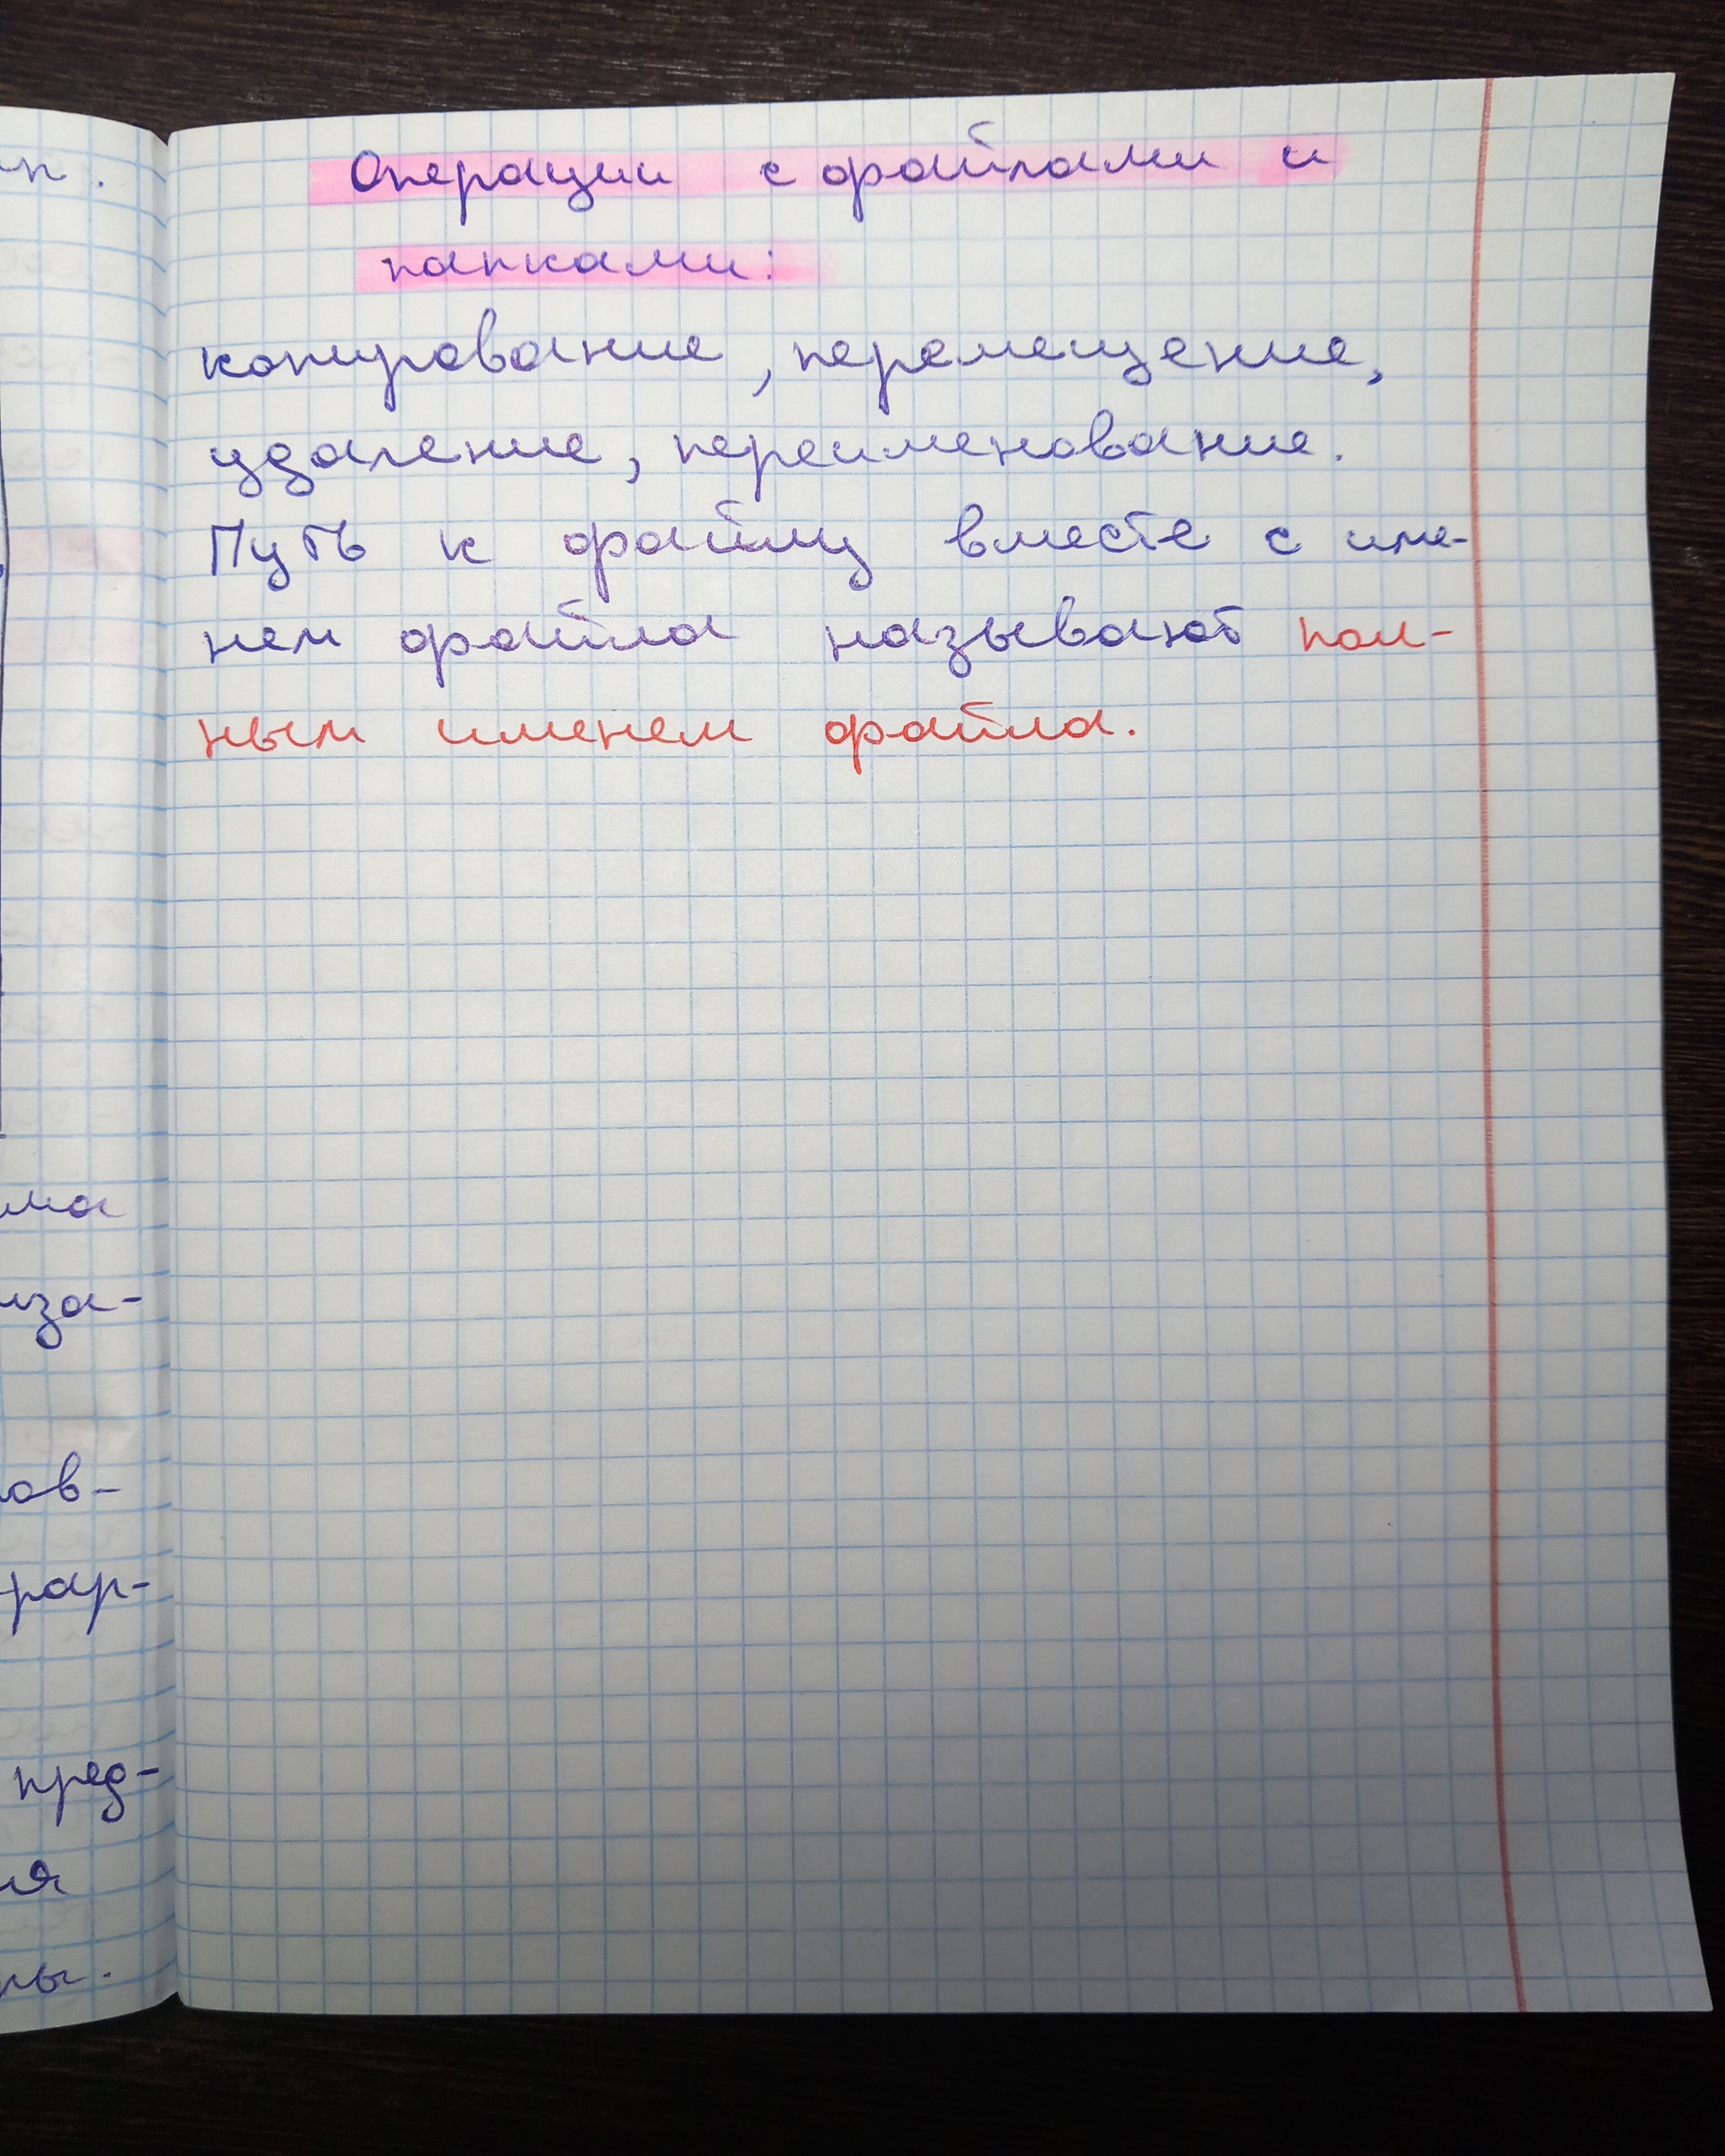 Операции с файлами и
папками:
копирование, перемещение,
удаление, переименование.
Путь к файлу вместе с име-
нем файла называют пол-
ным именем файла.
иза-
ов-
пред-